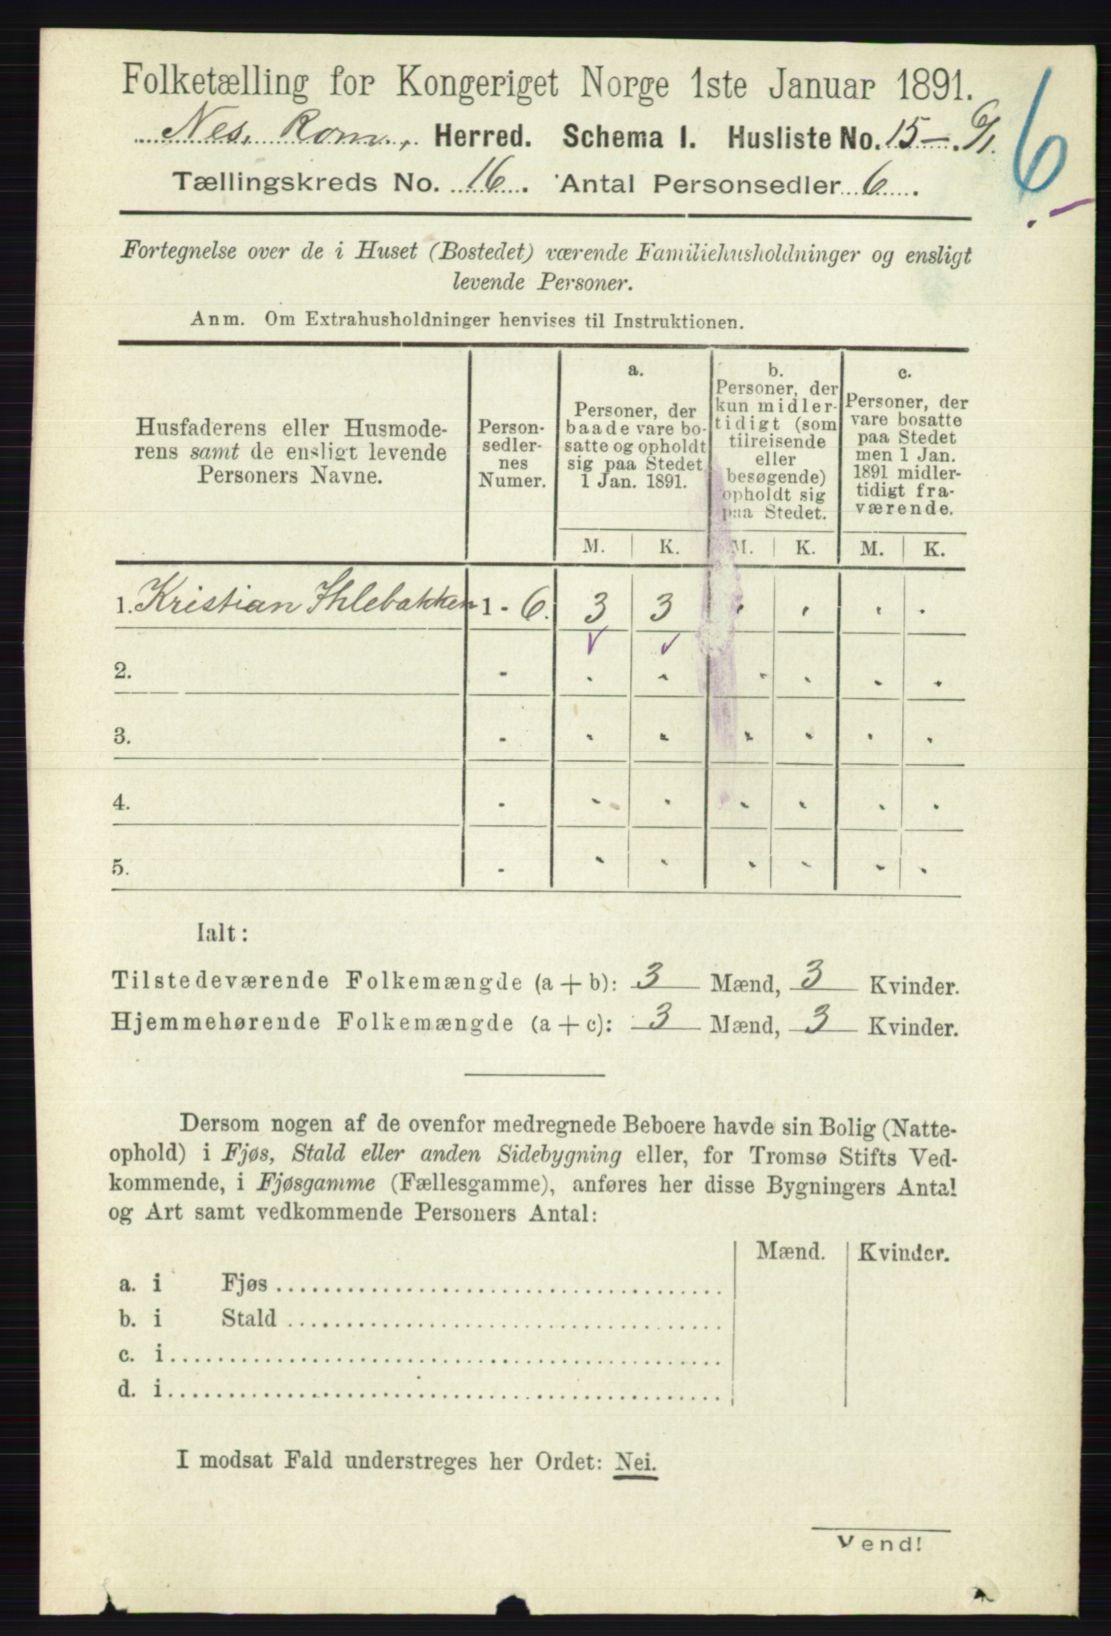 Folketælling for Kongeriget Norge 1ste Januar 1891.
Nes, Rom., Herred. Schema I. Husliste No. 15
6
Tællingskreds No. 16. Antal Personsedler 6.
Fortegnelse over de i Huset (Bostedet) værende Familiehusholdninger og ensligt
levende Personer.
Anm. Om Extrahusholdninger henvises til Instruktionen.
Husfaderens eller Husmode-
rens samt de ensligt levende
Personers Navne.
Person-
sedler-
nes
Numer.
a.
Personer, der
baade vare bo-
satte og opholdt
sig paa Stedet
1 Jan. 1891.
b.
Personer, der
kun midler-
tidigt (som
tilreisende
eller
besøgende)
opholdt sig
paa Stedet.
c.
Personer, der
vare bosatte
paa Stedet
men 1 Jan.
1891 midler-
tidigt fra-
værende.
M. K. M. K. M. K.
1. Kristian Ihlebakken 1 - 6. 3 3
2. -
3. -
4. -
5. -
Ialt:
Tilstedeværende Folkemængde (a + b): 3 Mænd, 3 Kvinder.
Hjemmehørende Folkemængde (a + c): 3 Mænd, 3 Kvinder.
Dersom nogen af de ovenfor medregnede Beboere havde sin Bolig (Natte-
ophold) i Fjøs, Stald eller anden Sidebygning eller, for Tromsø Stifts Ved-
kommende, i Fjøsgamme (Fællesgamme), anføres her disse Bygningers Antal
og Art samt vedkommende Personers Antal:
Mænd. Kvinder.
a. i Fjøs
b. i Stald
c. i
d. i
I modsat Fald understreges her Ordet: Nei.
Vend!